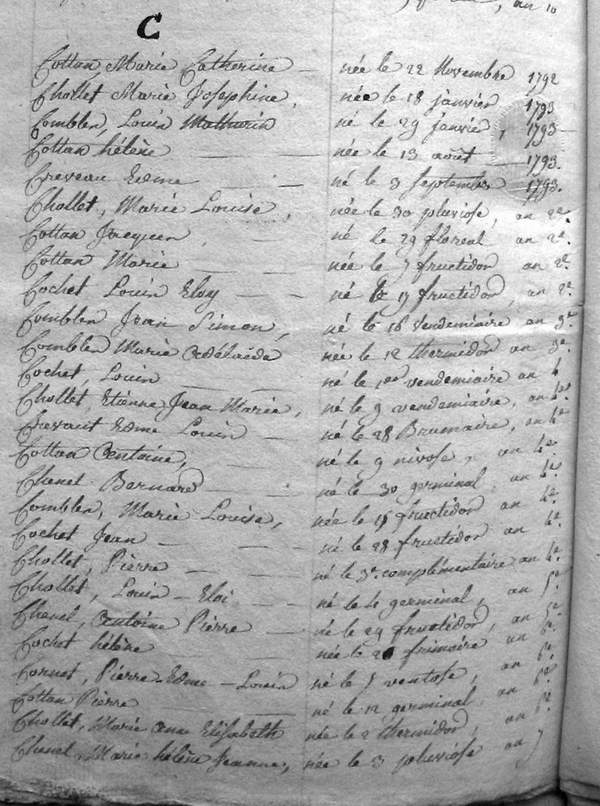 an 10
C
Cottan Marie Catherine — née le 22 Novembre 1792
Chollet Marie Josephine, née le 18 janvier 1793
Comblen, Louis Mathurin né le 29 janvier, 1793
Cottan hélène — — née le 13 août 1793.
Creveau Edme — — né le 3 septembre 1793.
Chollet, Marie Louise, née le 30 pluviose, an 2e.
Cottan Jacques, — né le 29 floreal an 2e.
Cottan Marie — — née le 7 fructidor an 2e.
Cochet Louis Eloy — — né le 17 fructidor, an 2e.
Comblen Jean Simon, né le 16 Vendemiaire an 3e.
Comblen Marie Adélaïde née le 12 thermidor an 3e.
Cochet, Louis — — né le 1er vendemiaire an 4
Chollet, Etienne Jean Marie, né le 9 vendemiaire, an 4e.
Crevaut Edme Louis — né le 28 Brumaire, an 4e
Cottan Antoine, — né le 9 nivose, an 4e.
Chenel Bernard — — né le 30 germinal, an 4e.
Comblen, Marie Louise, née le 15 fructidor an 4e.
Cochet Jean — — né le 28 fructidor an 4e.
Chollet, Pierre — — né le 3e. complémentaire an 4e.
Chollet, Louis - Eloi — né le 4 germinal, an 5e.
Chenel, Antoine Pierre — né le 29 fructidor, an 5e.
Cochet hélène — — née le 26 frimaire an 6e.
Cornet, Pierre-Edme - Louis né le 5 ventose, an 6e.
Cottan Pierre — — né le 12 germinal, an 6e.
Chollet, Marie Anne Elisabeth née le 2 thermidor, an 6e.
Chenel, Marie hélène Jeanne, née le 3 pluviose an 7